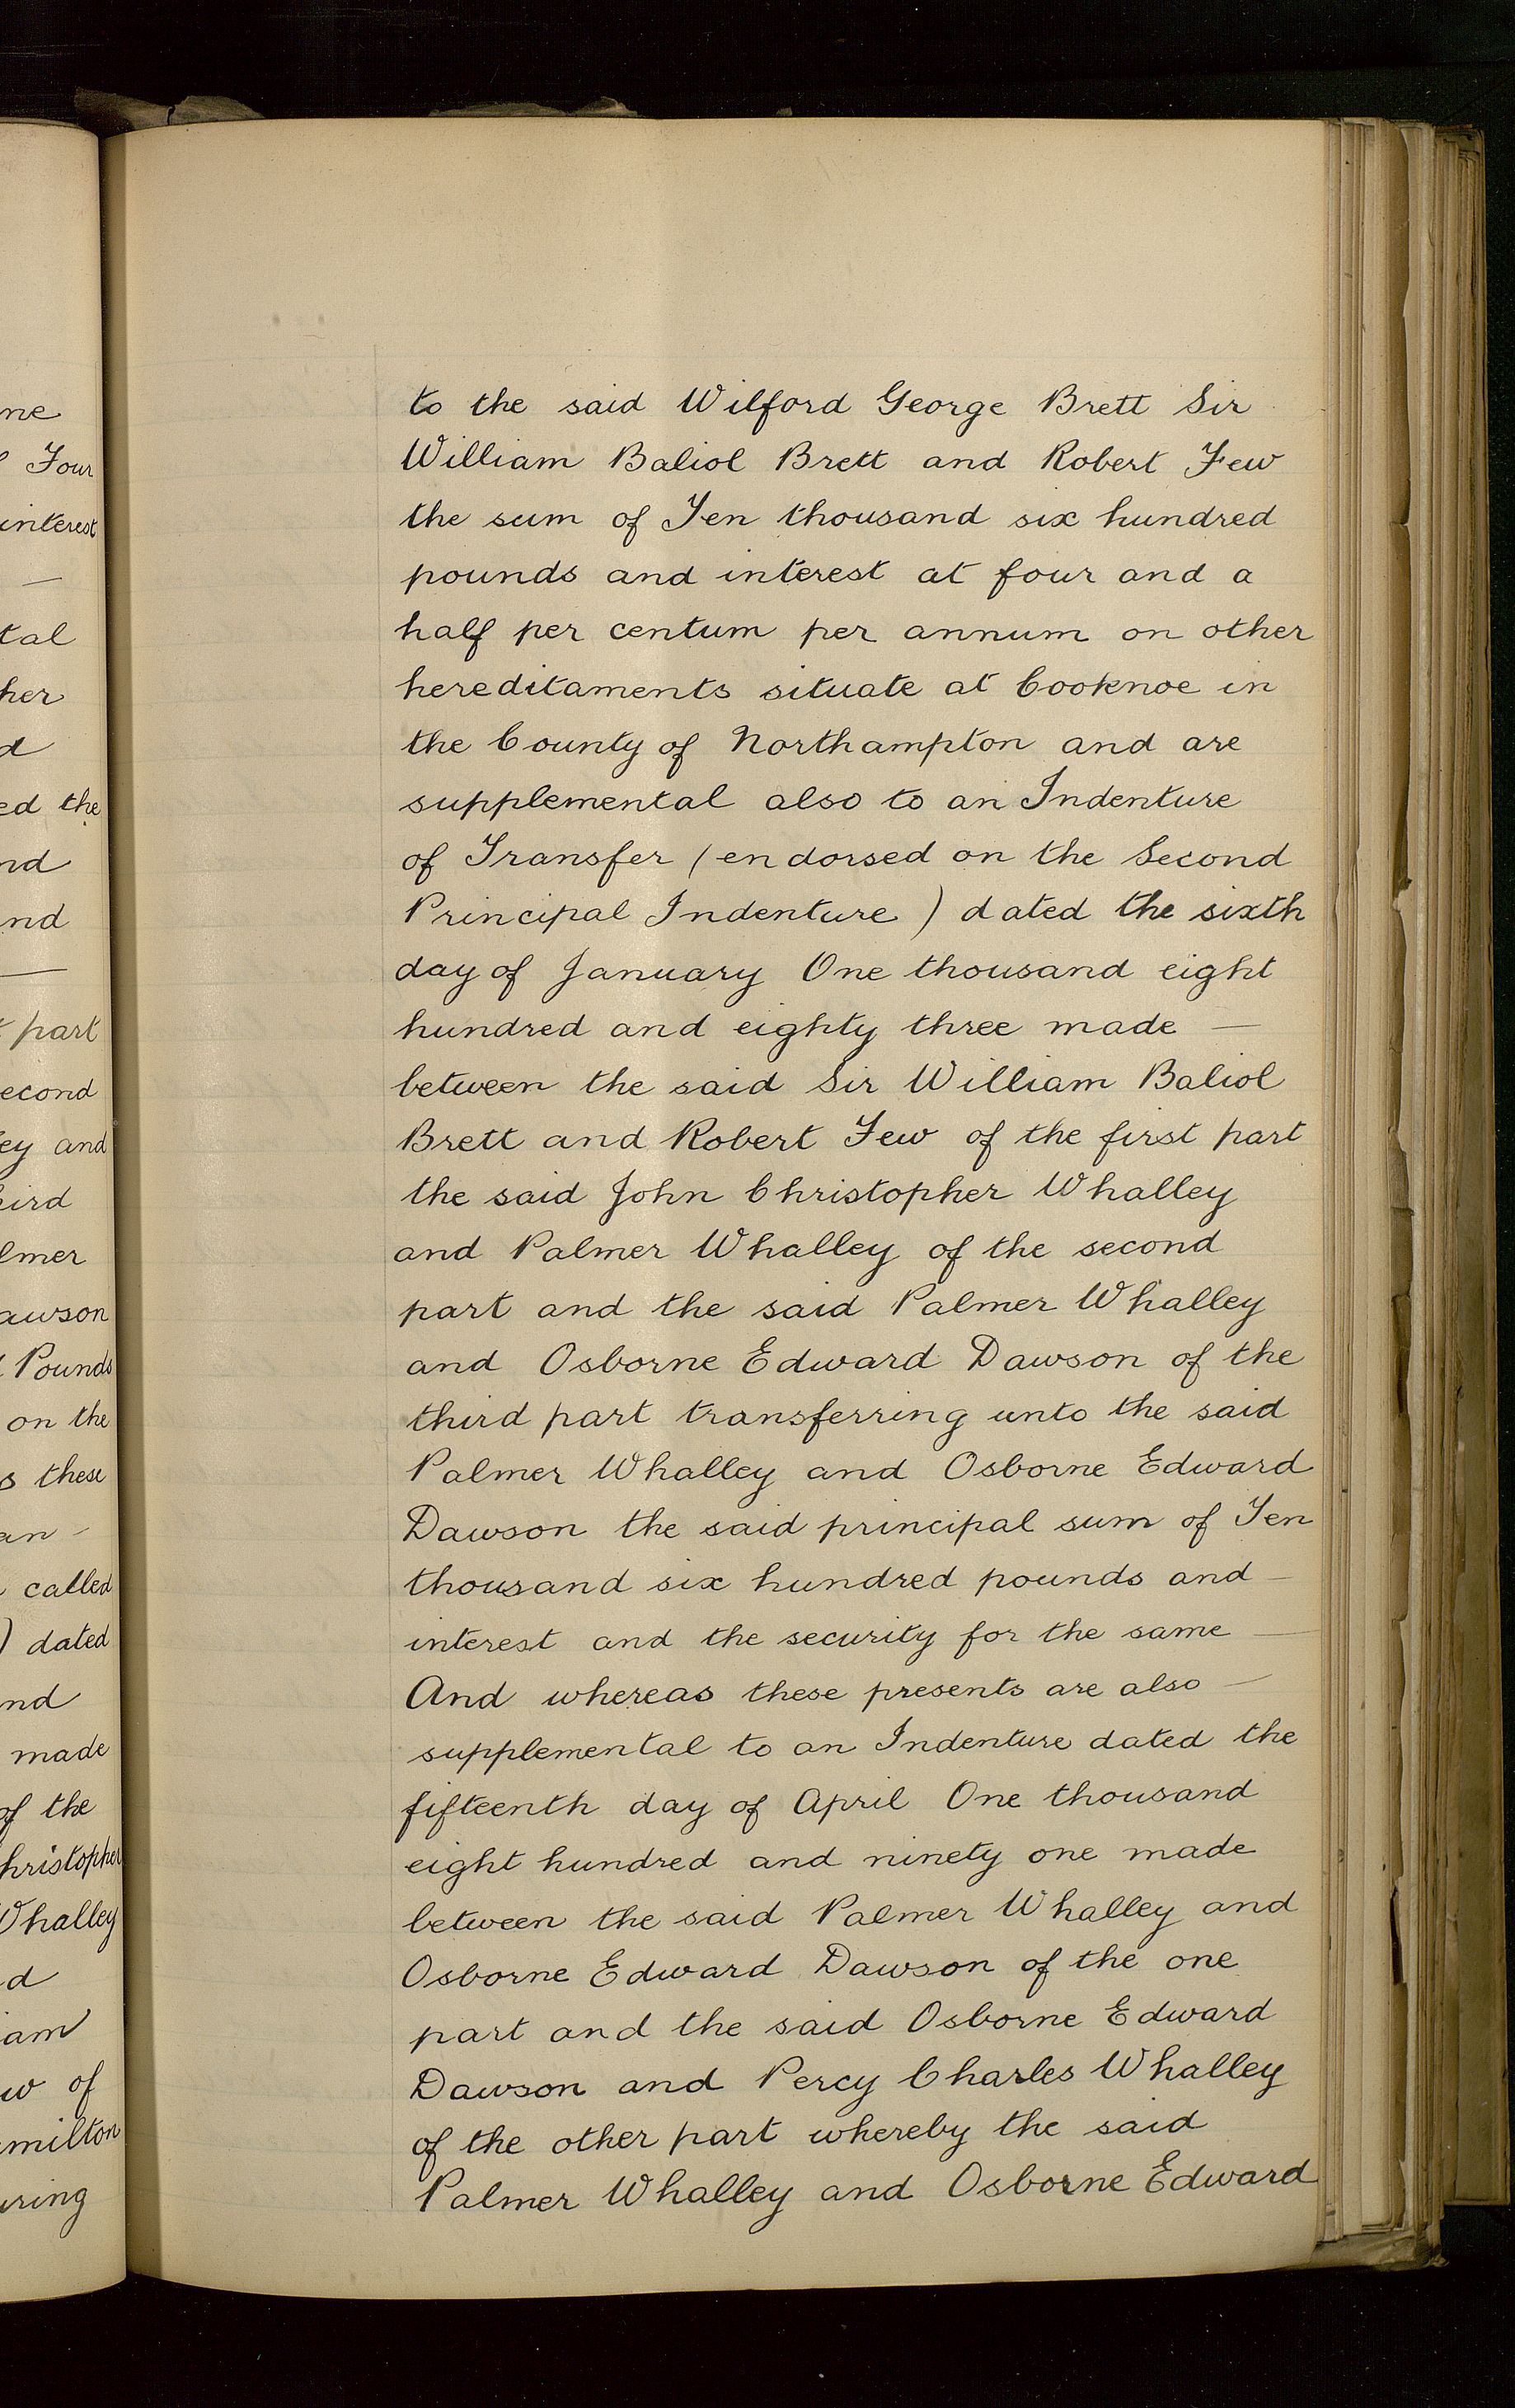 me
Four
interest
tal
her
d
ed the
nd
and
part
second
ey and
hird
lmer
awson
Pounds
on the
s these
an
called
) dated
and
made
of the
hristopher
Whalley
d
iam
ew of
milton
uring
to the said Wilford George Brett Sir
William Baliol Brett and Robert Few
the sum of Ten thousand six hundred
pounds and interest at four and a
half per centum per annum on other
hereditaments situate at Cooknoe in
the County of Northampton and are
supplemental also to an Indenture
of Transfer (endorsed on the Second
Principal Indenture) dated the sixth
day of January One thousand eight
hundred and eighty three made —
between the said Sir William Baliol
Brett and Robert Few of the first part
the said John Christopher Whalley
and Palmer Whalley of the second
part and the said Palmer Whalley
and Osborne Edward Dawson of the
third part transferring unto the said
Palmer Whalley and Osborne Edward
Dawson the said principal sum of Ten
thousand six hundred pounds and —
interest and the security for the same —
And whereas these presents are also —
supplemental to an Indenture dated the
fifteenth day of April One thousand
eight hundred and ninety one made
between the said Palmer Whalley and
Osborne Edward Dawson of the one
part and the said Osborne Edward
Dawson and Percy Charles Whalley
of the other part whereby the said
Palmer Whalley and Osborne Edward